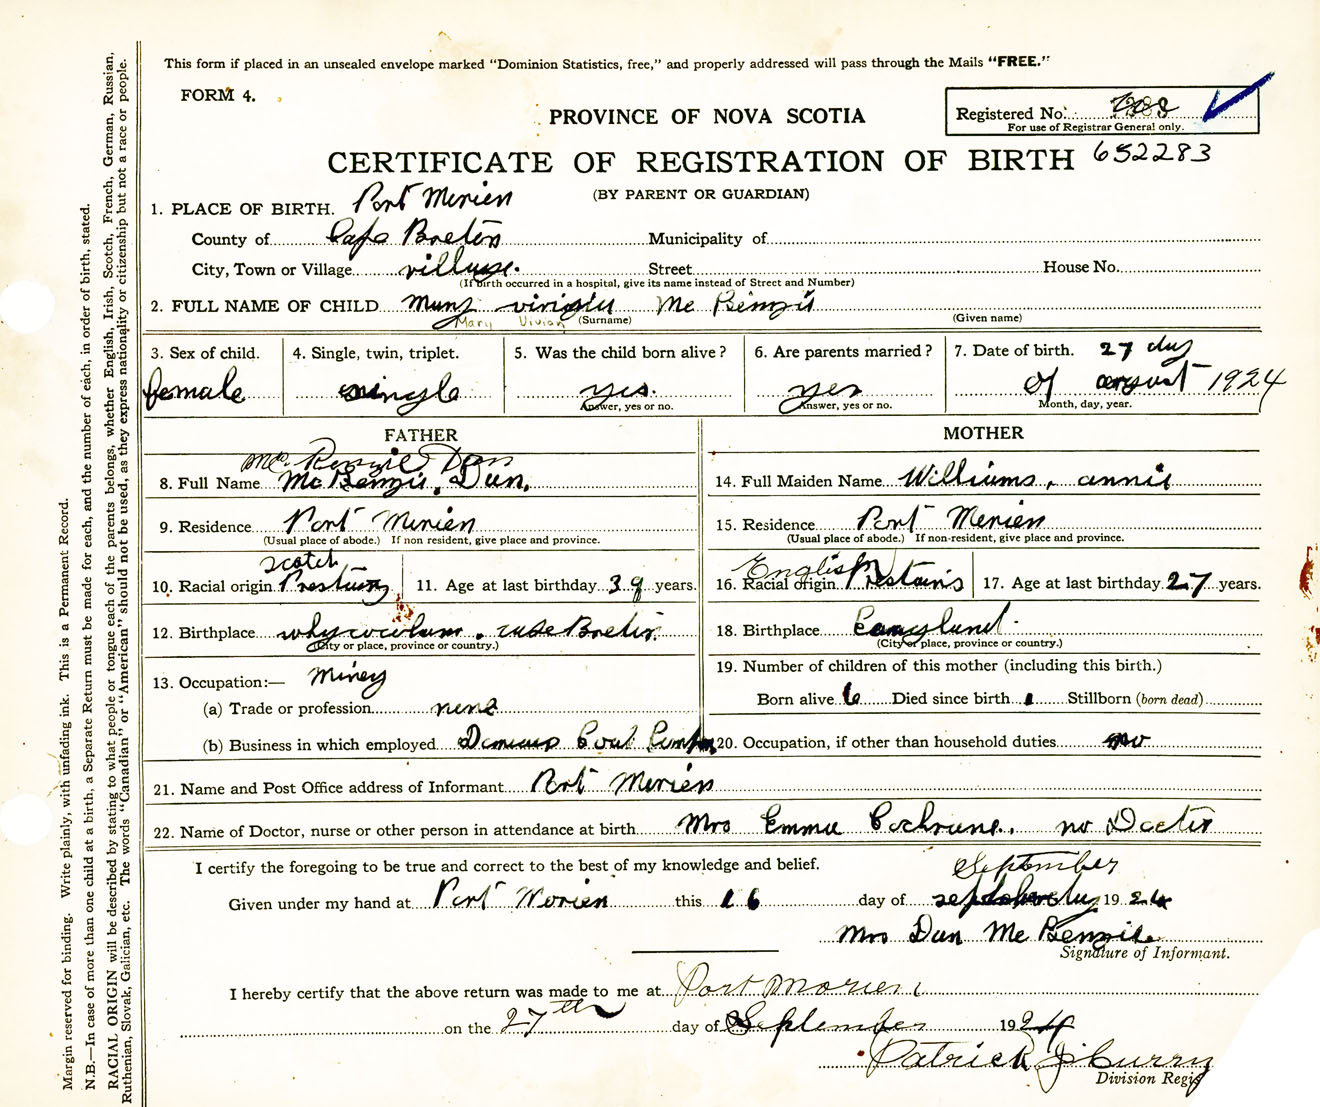 This form if placed in an unsealed envelope marked "Dominion Statistics, free," and properly addressed will pass through the Mails "FREE."
FORM 4.
PROVINCE OF NOVA SCOTIA
Registered No.
For use of Registrar General only.
CERTIFICATE OF REGISTRATION OF BIRTH 652283
(BY PARENT OR GUARDIAN)
1. PLACE OF BIRTH. Port Merien
County of Cape Breton Municipality of
City, Town or Village village. Street House No.
(If birth occurred in a hospital, give its name instead of Street and Number)
2. FULL NAME OF CHILD Mc Benzie
Mary Vivian (Surname) (Given name)
3. Sex of child. 4. Single, twin, triplet. 5. Was the child born alive? 6. Are parents married? 7. Date of birth. 27 day
female single yes. yes of august 1924
Answer, yes or no. Answer, yes or no. Month, day, year.
FATHER MOTHER
Mc. Kenzie Dan
8. Full Name Mc Benzie, Dan. 14. Full Maiden Name Williams, annie
9. Residence Port Merien 15. Residence Port Merien
(Usual place of abode.) If non resident, give place and province. (Usual place of abode.) If non-resident, give place and province.
scotch English
10. Racial origin 11. Age at last birthday 39 years. 16. Racial origin 17. Age at last birthday 27 years.
12. Birthplace Breton 18. Birthplace
(City or place, province or country.) (City or place, province or country.)
13. Occupation:— Miney 19. Number of children of this mother (including this birth.)
(a) Trade or profession none Born alive 6 Died since birth 1 Stillborn (born dead)
(b) Business in which employed Coal 20. Occupation, if other than household duties no
21. Name and Post Office address of Informant Port Merien
22. Name of Doctor, nurse or other person in attendance at birth Mrs Emma Cochrane, no Docter
I certify the foregoing to be true and correct to the best of my knowledge and belief. September
Given under my hand at Port Morien this 16 day of 1924
Mrs Dan Mc Benzie
Signature of Informant.
I hereby certify that the above return was made to me at Port Morien
on the 27th day of September 1924
Patrick J Curry
Division Regis
Margin reserved for binding. Write plainly, with unfading ink. This is a Permanent Record.
N.B.—In case of more than one child at a birth, a Separate Return must be made for each, and the number of each, in order of birth, stated.
RACIAL ORIGIN will be described by stating to what people or tongue each of the parents belongs, whether English, Irish, Scotch, French, German, Russian,
Ruthenian, Slovak, Galician, etc. The words "Canadian" or "American" should not be used, as they express nationality or citizenship but not a race or people.